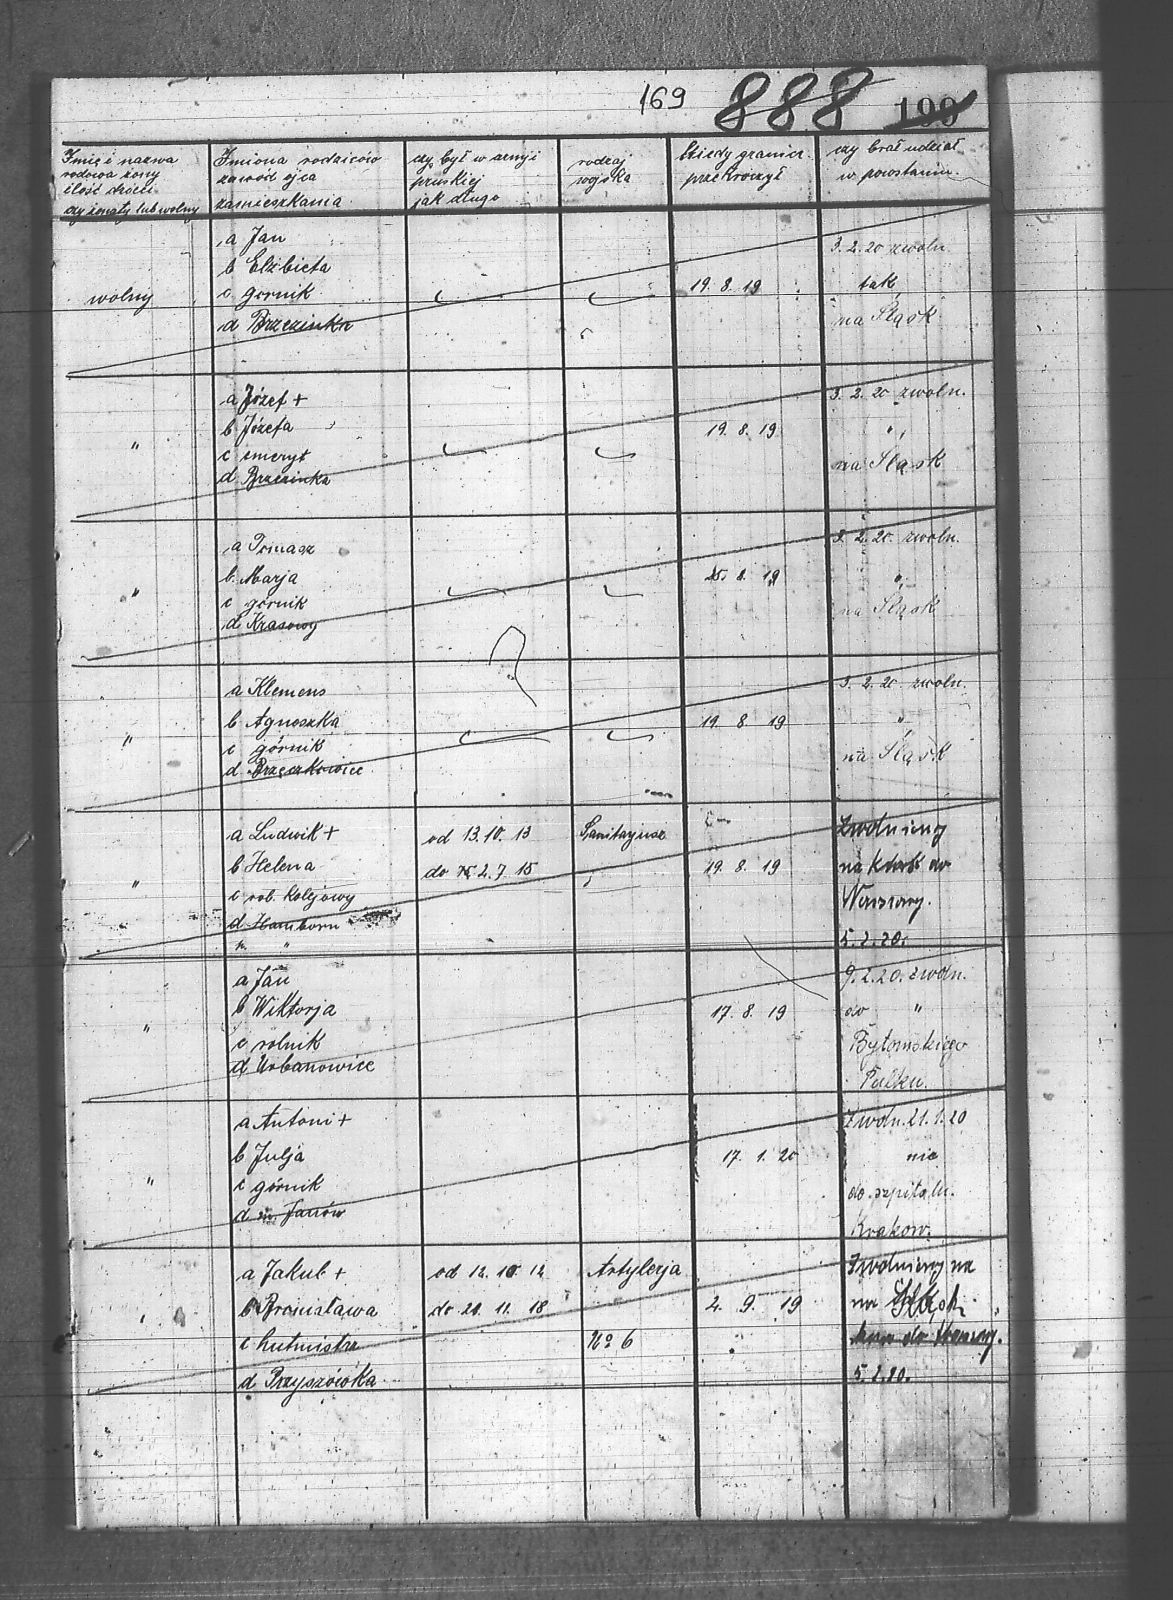 169 888 199
Imię i nazwa
rodowa żony
ilość dzieci
czy żonaty lub wolny
Imiona rodziców
zawód ojca
zamieszkania
czy był w armji
pruskiej
jak długo
rodzaj
wojska
Kiedy granicę
przekroczył
czy brał udział
w powstaniu.
wolny
a Jan
b Elżbieta
c górnik
d Brzezinka
19. 8. 19
3. 2. 20 zwoln.
tak
na Śląsk
"
a Józef +
b Józefa
c emeryt
d Brzezinka
19. 8. 19
3. 2. 20 zwoln.
"
na Śląsk
"
a Tomasz
b Marja
c górnik
d Krasowy
25. 8. 19
3. 2. 20. zwoln.
"
na Śląsk
"
a Klemens
b Agnieszka
c górnik
d Brzęczkowice
19. 8. 19
3. 2. 20. zwoln.
"
na Śląsk
"
a Ludwik +
b Helena
c rob. kolejowy
d Hamborn
" "
od 13. 10. 13
do 2. 7. 15
Sanitarjusz
19. 8. 19
Zwolniony
na do
Warszawy.
5. 2. 20.
"
a Jan
b Wiktorja
c rolnik
d Urbanowice
17. 8. 19
9. 2. 20. zwoln.
do "
Bytomskiego
Pułku.
"
a Antoni +
b Julja
c górnik
d Janów
17. 1. 20
Zwoln. 21. 1. 20
nie
do szpitalu.
Krakow.
"
a Jakub +
b Bronisława
c hutmistrz
d Przyszówka
od 12. 10. 12
do 21. 11. 18
Artylerja
No 6
2. 9. 19
Zwolniony na
na Śląsk
do
5. 2. 20.